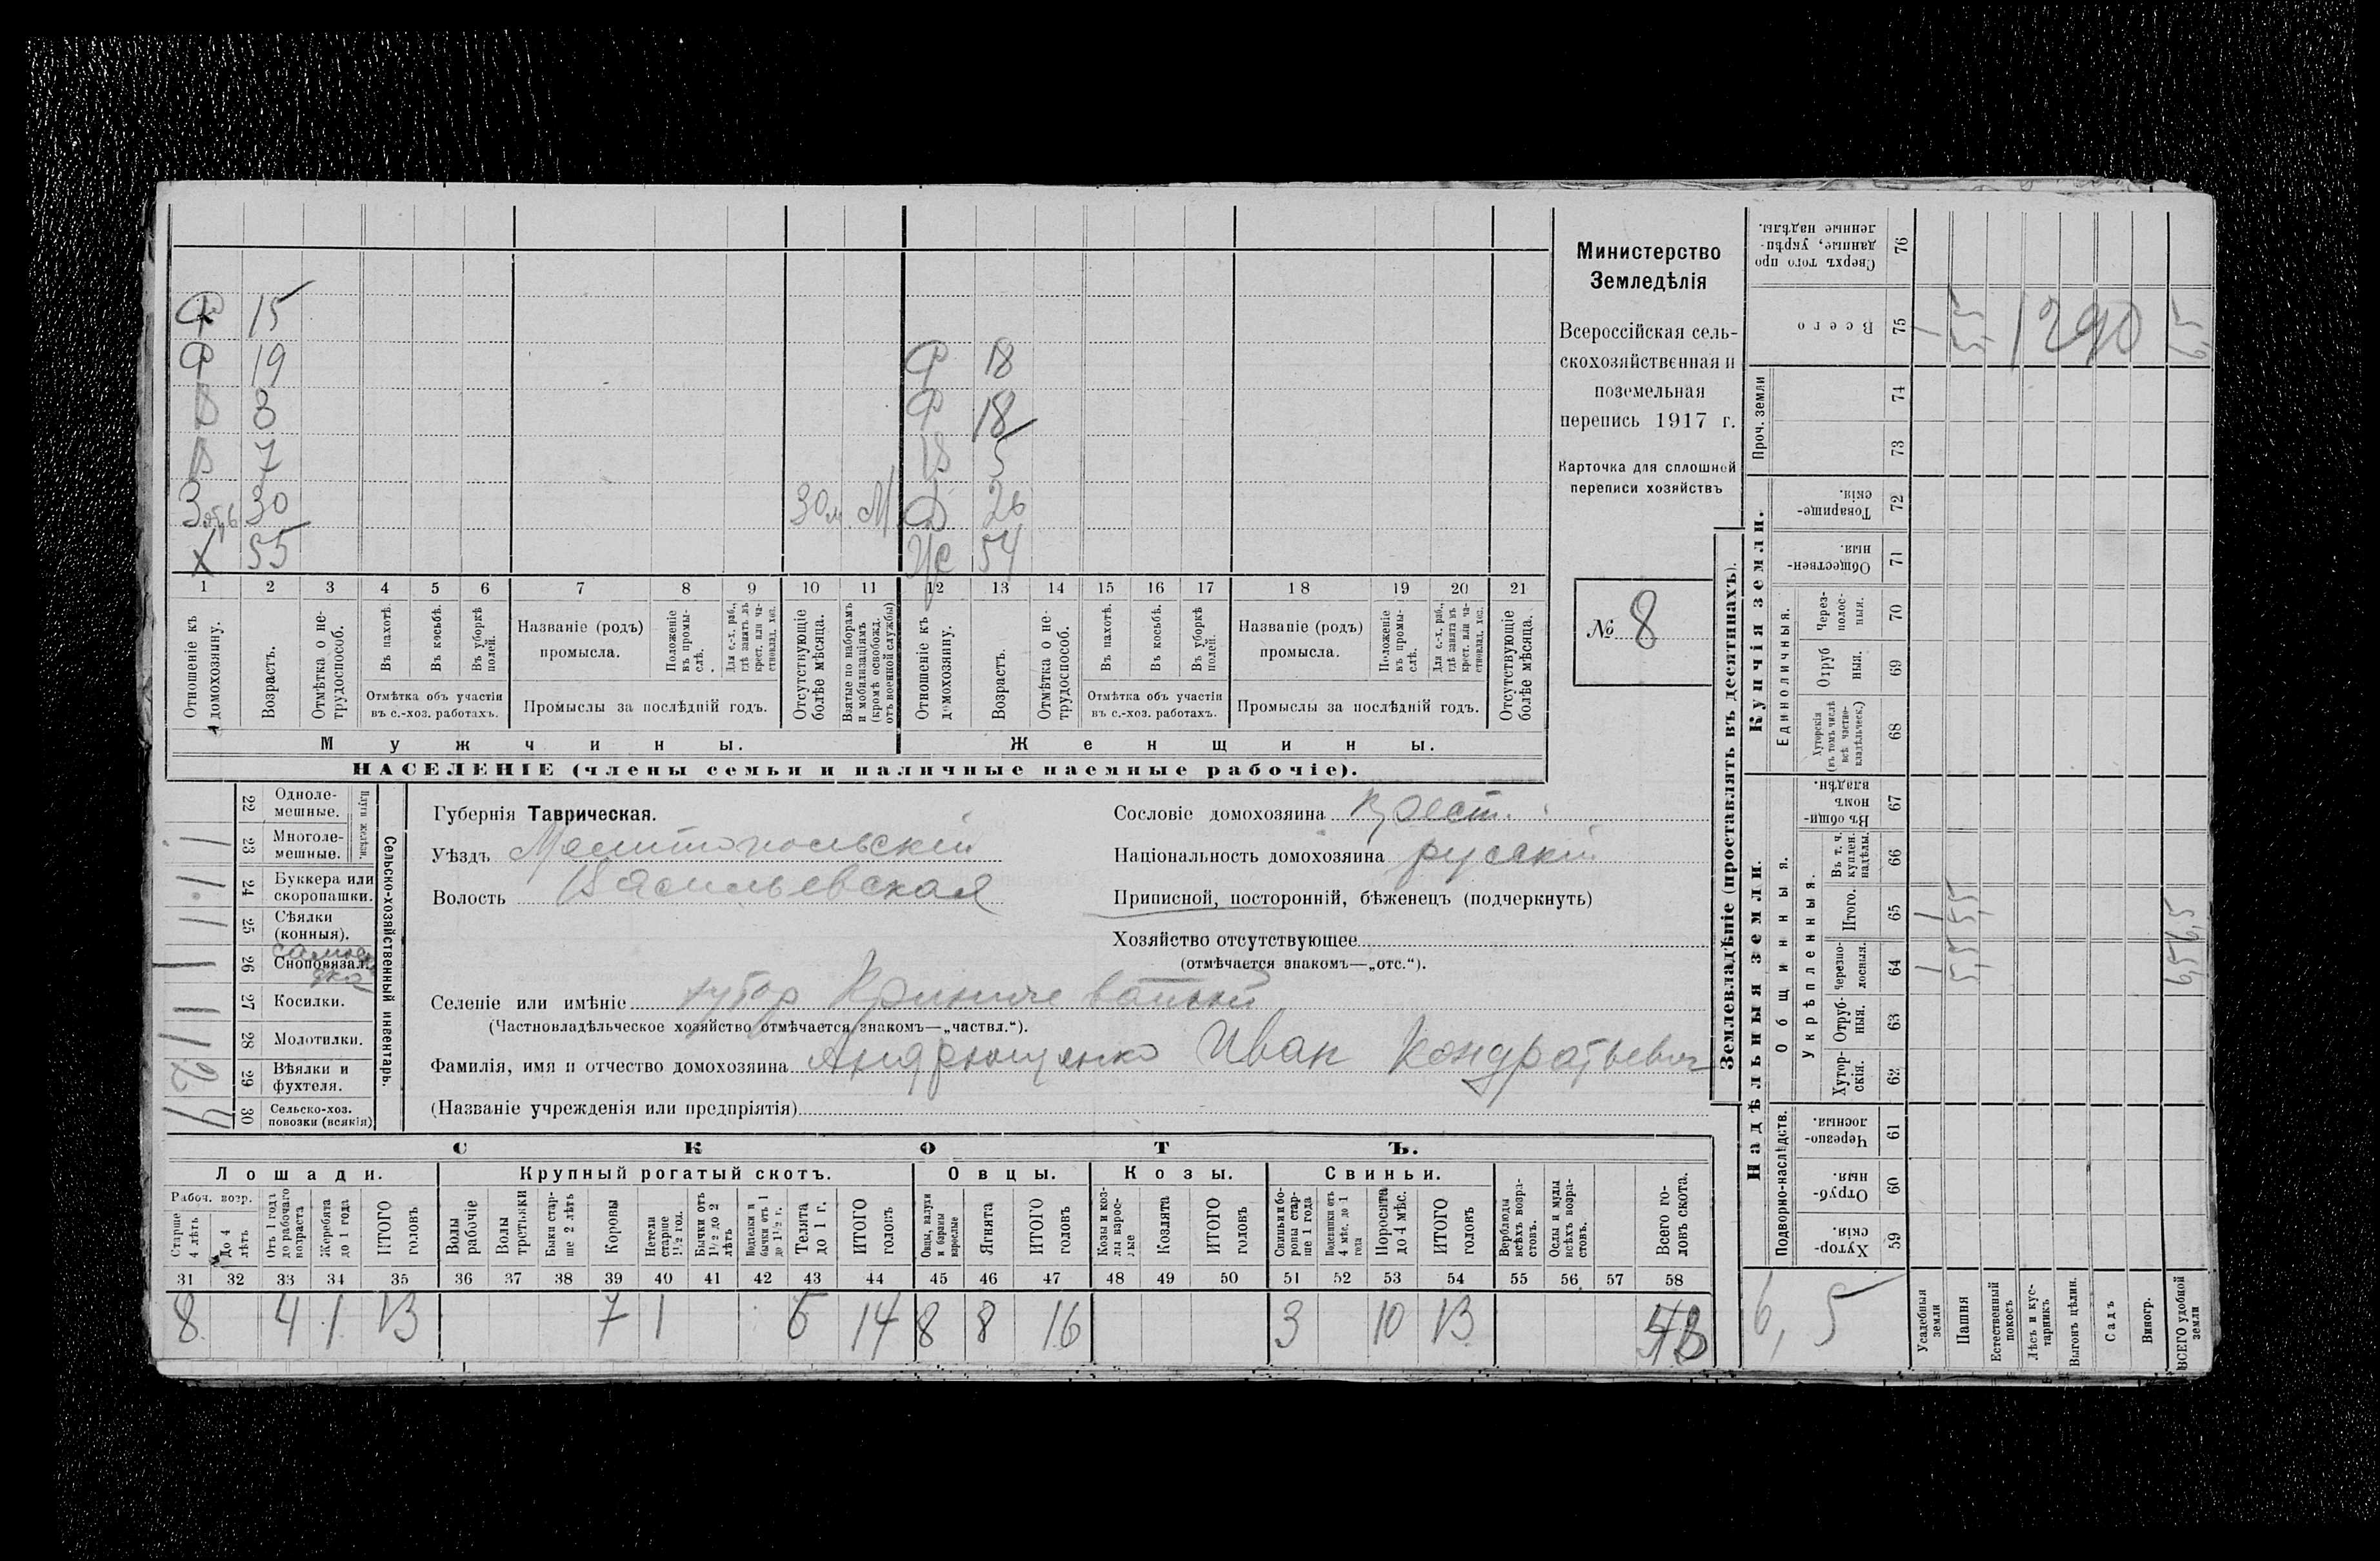 Ф 15
Ф 19 Ф 18
В 3 Ф 18
В 7 В 5
30 30 м М Ф 26
Х 55 Ж 54
1 2 3 4 5 6 7 8 9 10 11 12 13 14 15 16 17 18 19 20 21
Отношеніе къ домохозяину.
Возрастъ.
Отмѣтка о не-трудоспособ.
Въ пахотѣ.
Въ косьбѣ.
Въ уборкѣ полей.
Отмѣтка объ участіи
въ с.-хоз. работахъ.
Названіе (родъ)
промысла.
Положеніе въ промы-слѣ.
Для с.-х. раб., гдѣ занятъ въ крест. или ча-стновлад. хоз.
Промыслы за послѣдній годъ.
Отсутствующіе болѣе мѣсяца.
Взятые по наборамъ и мобилизаціямъ (кромѣ освобожд. отъ военной службы)
Отношеніе къ домохозяину.
Возрастъ.
Отмѣтка о не-трудоспособ.
Въ пахотѣ.
Въ косьбѣ.
Въ уборкѣ полей.
Отмѣтка объ участіи
въ с.-хоз. работахъ.
Названіе (родъ)
промысла.
Положеніе въ промы-слѣ.
Для с.-х. раб., гдѣ занята въ крест. или ча-стновлад. хоз.
Промыслы за послѣдній годъ.
Отсутствующіе болѣе мѣсяца.
Мужчины. Женщины.
НАСЕЛЕНІЕ (члены семьи и наличные наемные рабочіе).
Министерство
Земледѣлія
Всероссійская сель-
скохозяйственная и
поземельная
перепись 1917 г.
Карточка для сплошной
переписи хозяйствъ
№ 8
22 Одноле-мешные.
Плуги желѣзн.
1 23 Многоле-мешные.
1 24 Буккера или скоропашки.
1 25 Сѣялки (конныя).
1 26 Сноповязал. самоскидка
1 27 Косилки.
1 28 Молотилки.
2 29 Вѣялки и фухтеля.
4 30 Сельско-хоз. повозки (всякія)
Сельско-хозяйственный инвентарь.
Губернія Таврическая.
Уѣздъ Мелитопольскій
Волость Васильевская
Сословіе домохозяина Крест.
Національность домохозяина русскій
Приписной, посторонній, бѣженецъ (подчеркнуть)
Хозяйство отсутствующее
(отмѣчается знакомъ—„отс.“).
Селеніе или имѣніе хутор
(Частновладѣльческое хозяйство отмѣчается знакомъ—„частвл.“).
Фамилія, имя и отчество домохозяина Андрющенко Иван Кондратьевич
(Названіе учрежденія или предпріятія)
СКОТЪ.
Лошади. Крупный рогатый скотъ. Овцы. Козы. Свиньи.
Рабоч. возр.
Старше 4 лѣтъ
До 4 лѣтъ
Отъ 1 года до рабочаго возраста
Жеребята до 1 года
ИТОГО головъ
Волы рабочіе
Волы третьяки
Быки стар-ше 2 лѣтъ
Коровы
Нетели старше 1½ год.
Бычки отъ 1½ до 2 лѣтъ
Подтелки и бычки отъ 1 до 1½ г.
Телята до 1 г.
ИТОГО головъ
Овцы, валухи и бараны взрослые
Ягнята
ИТОГО головъ
Козы и коз-лы взрос-лые
Козлята
ИТОГО головъ
Свиньи и бо-ровы стар-ше 1 года
Подсвинки отъ 4 мѣс. до 1 года
Поросята до 4 мѣс.
ИТОГО головъ
Верблюды всѣхъ возра-стовъ.
Ослы и мулы всѣхъ возра-стовъ.
Всего го-ловъ скота.
31 32 33 34 35 36 37 38 39 40 41 42 43 44 45 46 47 48 49 50 51 52 53 54 55 56 57 58
8 4 1 13 7 1 6 14 8 8 16 3 10 13
Землевладѣніе (проставлять въ десятинахъ).
Сверхъ того про-данные, укрѣп-ленные надѣлы. 76
Всего 75 1 5,5 1290 6,5
Проч. земли 74
73
Купчія земли.
Товарище-скія. 72
Обществен-ныя. 71
Единоличныя.
Через-полос-ныя. 70
Отруб-ныя. 69
Хуторскія (въ томъ числѣ всѣ частно-владѣльческ.) 68
Надѣльныя земли.
Общинныя.
Въ общин-номъ владѣн. 67
Укрѣпленныя.
Въ т. ч. куплен. надѣлы. 66
Итого. 65 1 5,5 6,5
Черезпо-лосныя. 64 1 5,5 6,5
Отруб-ныя. 63
Хутор-скія. 62
Подворно-наслѣдств.
Черезпо-лосныя. 61
Отруб-ныя. 60
Хутор-скія. 59
6,5
Усадебныя земли
Пашня
Естественный покосъ
Лѣсъ и кус-тарникъ
Выгонъ цѣлин.
Садъ
Виногр.
ВСЕГО удобной земли